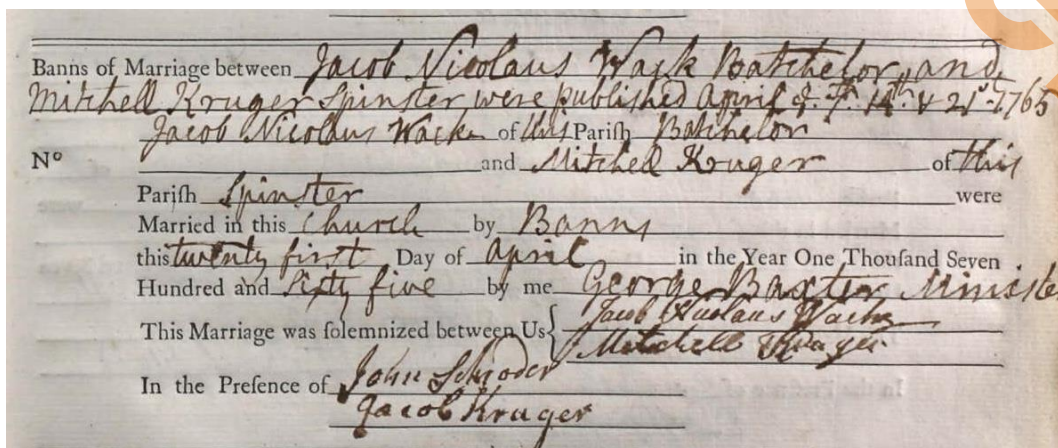 Banns of Marriage between Jacob Nicolaus Wack Batchelor and
Mitchell Kruger Spinster were published April ye 7th 14th & 21st 1765
Jacob Nicolaus Wack of this Pariſh Batchelor
No and Mitchell Kruger of this
Pariſh Spinster were
Married in this Church by Banns
this twenty first Day of April in the Year One Thouſand Seven
Hundred and Sixty five by me George Baxter Ministe
This Marriage was ſolemnized between Us Jacob Nicolaus Wack
Mitchell Kruger
In the Preſence of John Schroder
Jacob Kruger